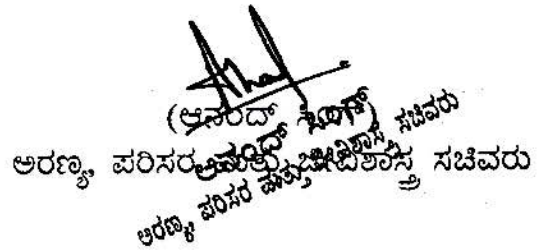 (ಆನಂದ್ ಸಿಂಗ್)
ಅರಣ್ಯ, ಪರಿಸರ ಮತ್ತು ಜೀವಿಶಾಸ್ತ್ರ ಸಚಿವರು
ಆನಂದ್ ಸಿಂಗ್
ಅರಣ್ಯ, ಪರಿಸರ ಮತ್ತು ಜೀವಿಶಾಸ್ತ್ರ ಸಚಿವರು